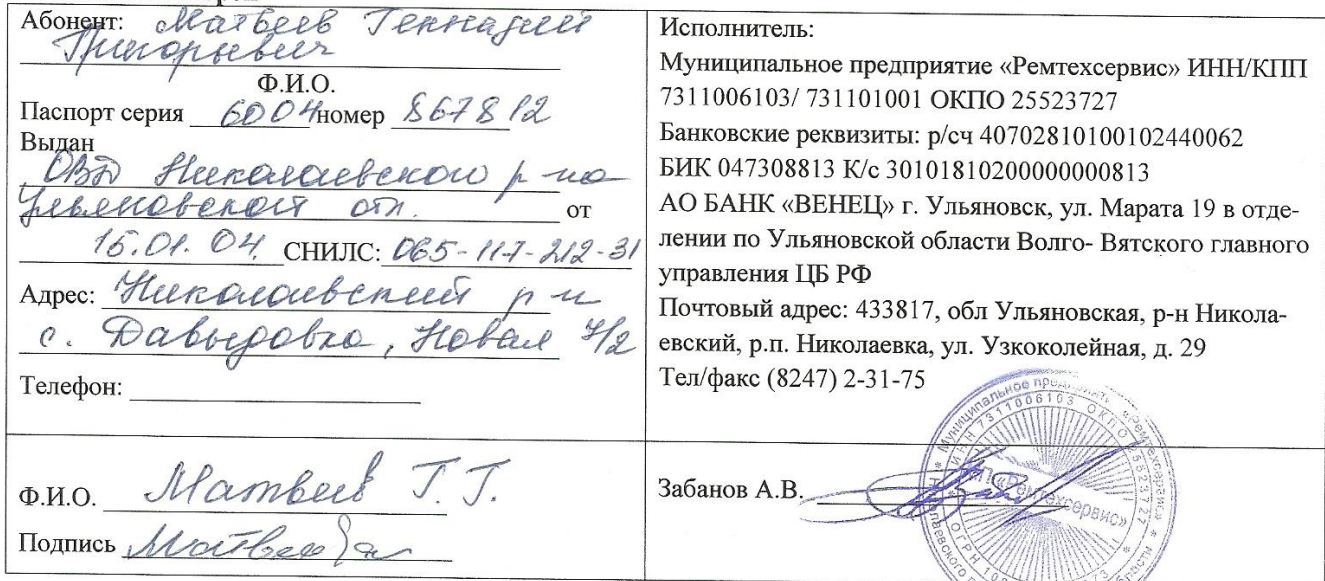 Абонент: Матвеев Геннадий
Григорьевич
Ф.И.О.
Паспорт серия 6004 номер 867812
Выдан
ОВД Николаевского р-на
Ульяновской отл. от
15.01.04. СНИЛС: 065-117-212-31
Адрес: Николаевский р-н
с. Давыдовка, Новая 7/2
Телефон:
Ф.И.О. Матвеев Г. Г.
Подпись Матвеев
Исполнитель:
Муниципальное предприятие «Ремтехсервис» ИНН/КПП
7311006103/ 731101001 ОКПО 25523727
Банковские реквизиты: р/сч 40702810100102440062
БИК 047308813 К/с 30101810200000000813
АО БАНК «ВЕНЕЦ» г. Ульяновск, ул. Марата 19 в отде-
лении по Ульяновской области Волго- Вятского главного
управления ЦБ РФ
Почтовый адрес: 433817, обл Ульяновская, р-н Никола-
евский, р.п. Николаевка, ул. Узкоколейная, д. 29
Тел/факс (8247) 2-31-75
Забанов А.В.
Муниципальное «Ремтехсервис»
ИНН 7311006103 ОКПО 25523727
МП«Ремтехсервис»
ОГРН